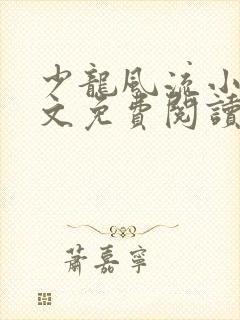 少龍風流小
文免費閱讀
蕭嘉寧